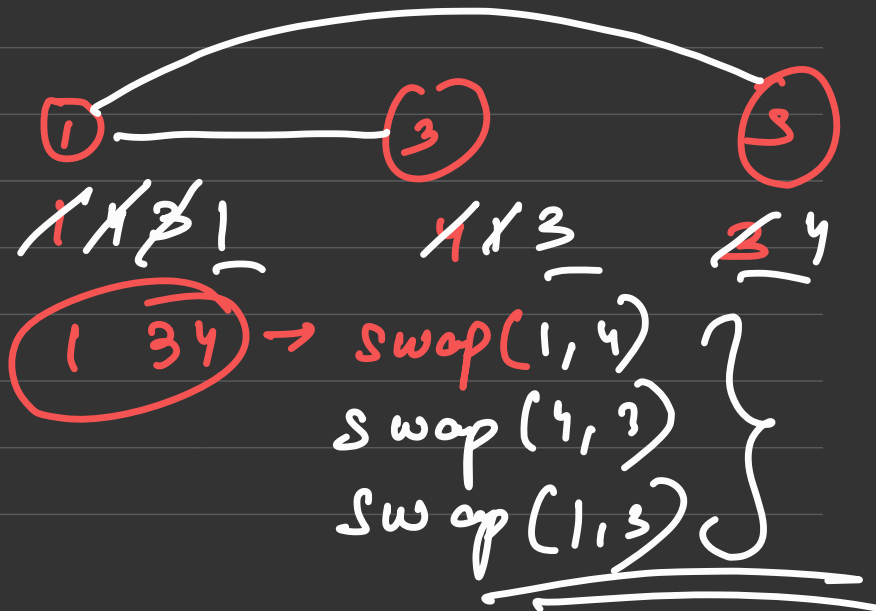 1 3 5
1 4 3 1 4 1 3 3 4
1 3 4 → swap(1,4)
swap(4,3)
swap(1,3)